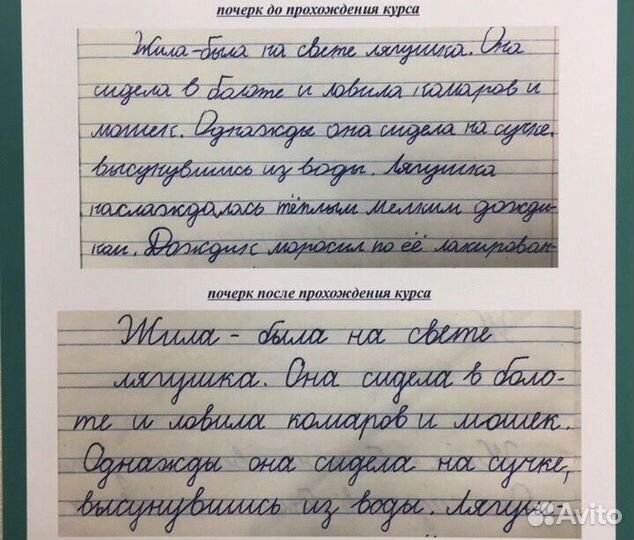 почерк до прохождения курса
Жила-была на свете лягушка. Она
сидела в болоте и ловила комаров и
мошек. Однажды она сидела на сучке,
высунувшись из воды. Лягушка
наслаждалась тёплым мелким дожди-
ком. Дождик моросил по её лакирован-
почерк после прохождения курса
Жила - была на свете
лягушка. Она сидела в боло-
те и ловила комаров и мошек.
Однажды она сидела на сучке,
высунувшись из воды. Лягуш-
Avito